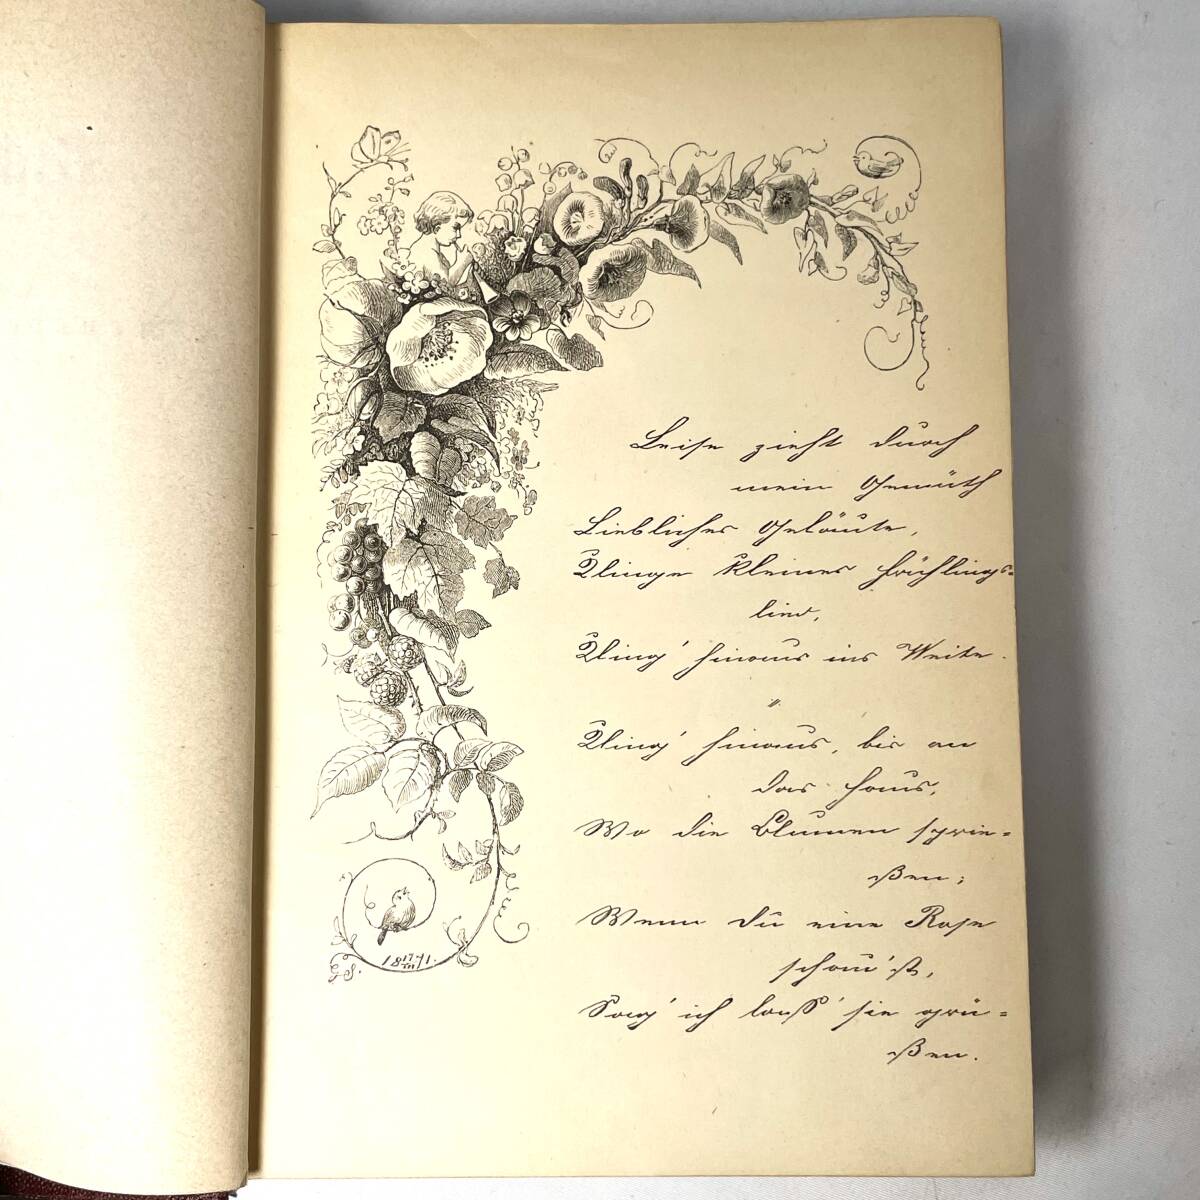 Leise zieht durch
mein Gemüth
Liebliches Geläute,
Klinge kleines Frühlings-
lied,
Kling' hinaus ins Weite.
Kling' hinaus, bis an
das Haus,
Wo die Blumen sprie-
ßen;
Wenn du eine Rose
schau'st,
Sag' ich lass' sie grü-
ßen.
G S. 18 17/III 71.